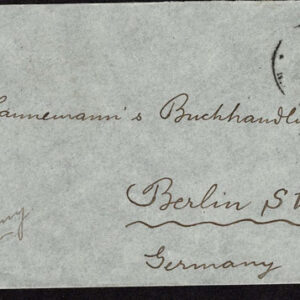 annemann's Buchhandlu
Berlin S
Germany